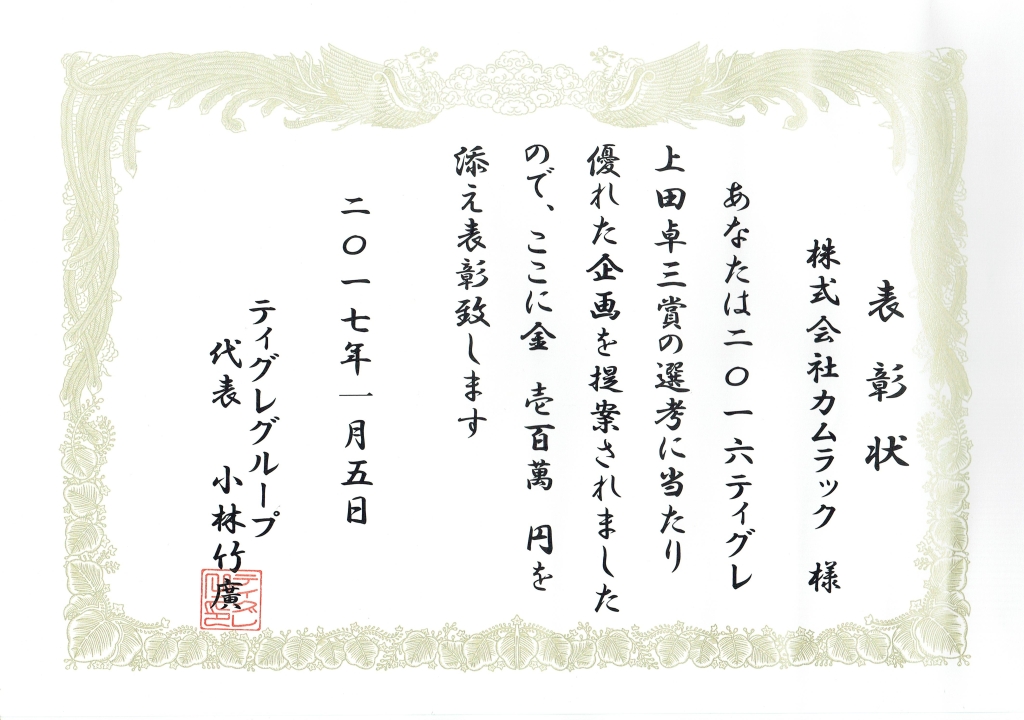 表彰状
株式会社カムラック 様
あなたは二〇一六ティグレ
上田卓三賞の選考に当たり
優れた企画を提案されました
ので、ここに金 壱百萬 円を
添え表彰致します
二〇一七年一月五日
ティグレグループ
代表 小林竹廣